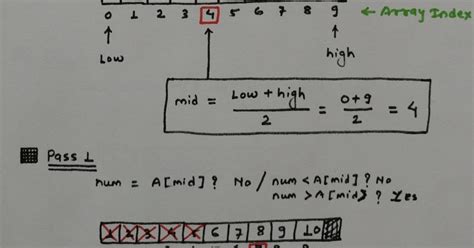 0 1 2 3 4 5 6 7 8 9 ← Array Index
Low high
mid = Low + high / 2 = 0+9 / 2 = 4
Pass 1
num = A[mid] ? No / num < A[mid] ? No
num > A[mid] ? Yes
1 2 3 4 5 6 7 8 9 10